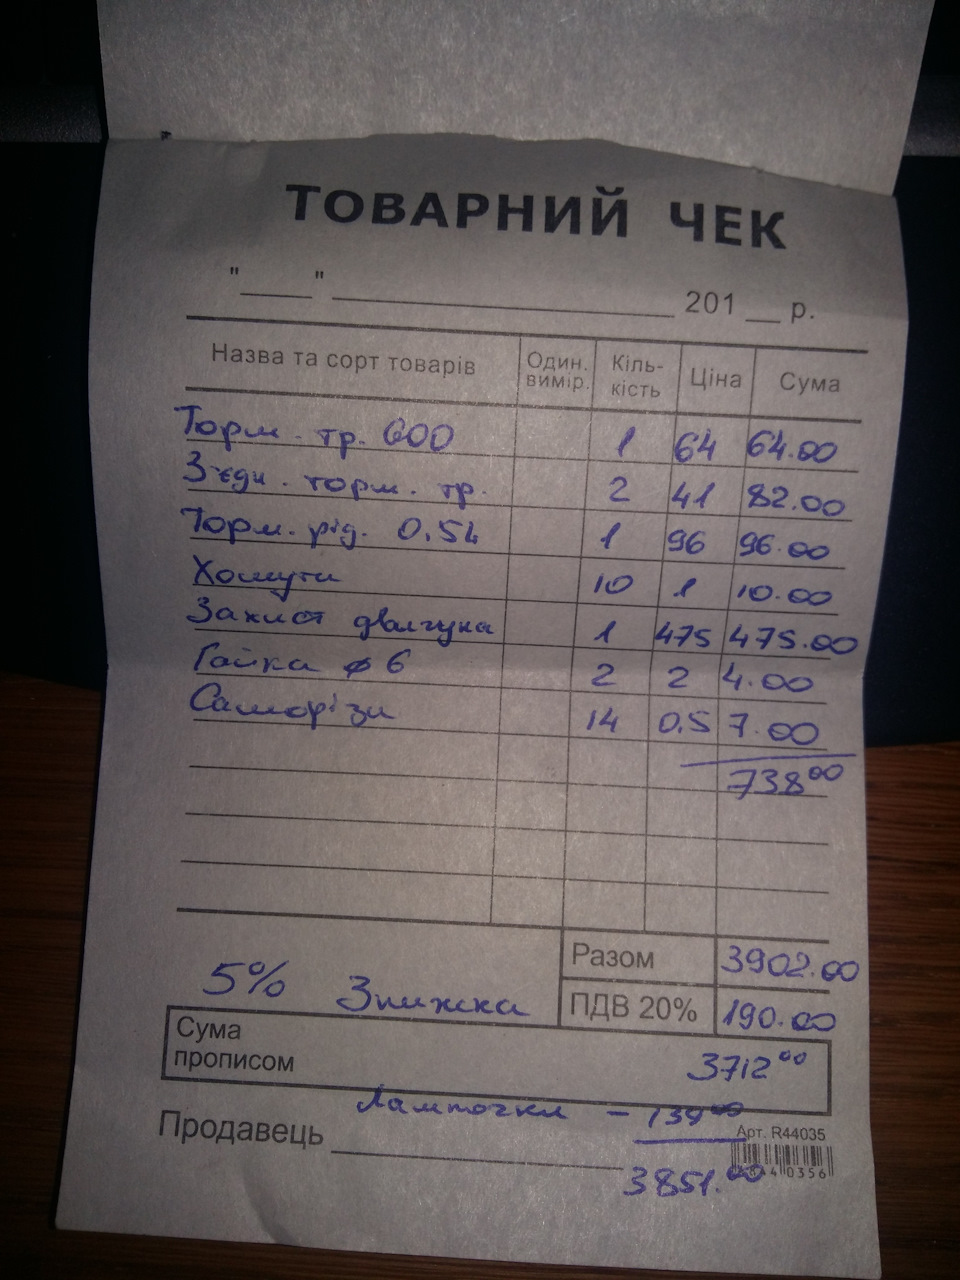 ТОВАРНИЙ ЧЕК
"____" ____________ 201__ р.
Назва та сорт товарів Один. вимір. Кіль-кість Ціна Сума
Торм. тр. 600 1 64 64.00
З'єдн. торм. тр. 2 41 82.00
Торм. рід. 0.5L 1 96 96.00
Хомути 10 1 10.00
Захист двигуна 1 475 475.00
Гайка ø 6 2 2 4.00
Саморізи 14 0.5 7.00
738.00
Разом 3902.00
5% Знижка ПДВ 20% 190.00
Сума
прописом 3712.00
Лампочки - 139.00
Продавець Арт. R44035
3851.00